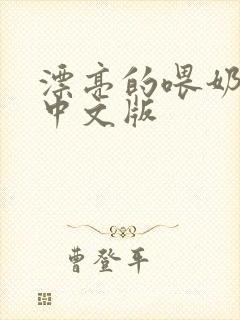 漂亮的喂奶
中文版
曹登平